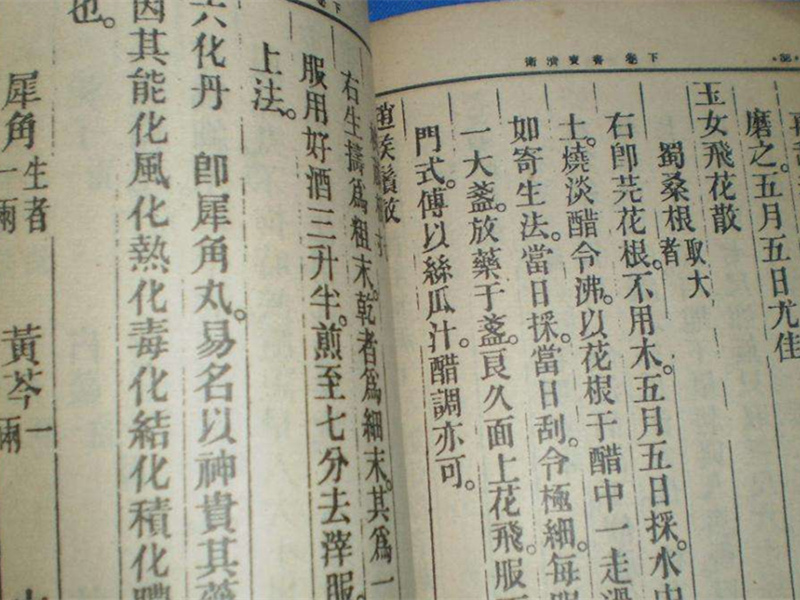 衛濟寶書 卷下
磨之。五月五日尤佳
玉女飛花散
蜀桑根取大者
右卽芫花根。不用木。五月五日採。水中
土。燒淡醋令沸。以花根于醋中一走過
如寄生法。當日採。當日刮。令極細。每服
一大盞。放藥于盞。良久面上花飛。服
門式。傅以絲瓜汁。醋調亦可。
趙侯鬚散
下
右生擣爲粗末。乾者爲細末。其爲一
服用好酒三升半。煎至七分去滓。服
上法。
六化丹 卽犀角丸。易名以神貴其藥
因其能化風化熱化毒化結化積化
也。
犀角生者一兩 黃芩一兩